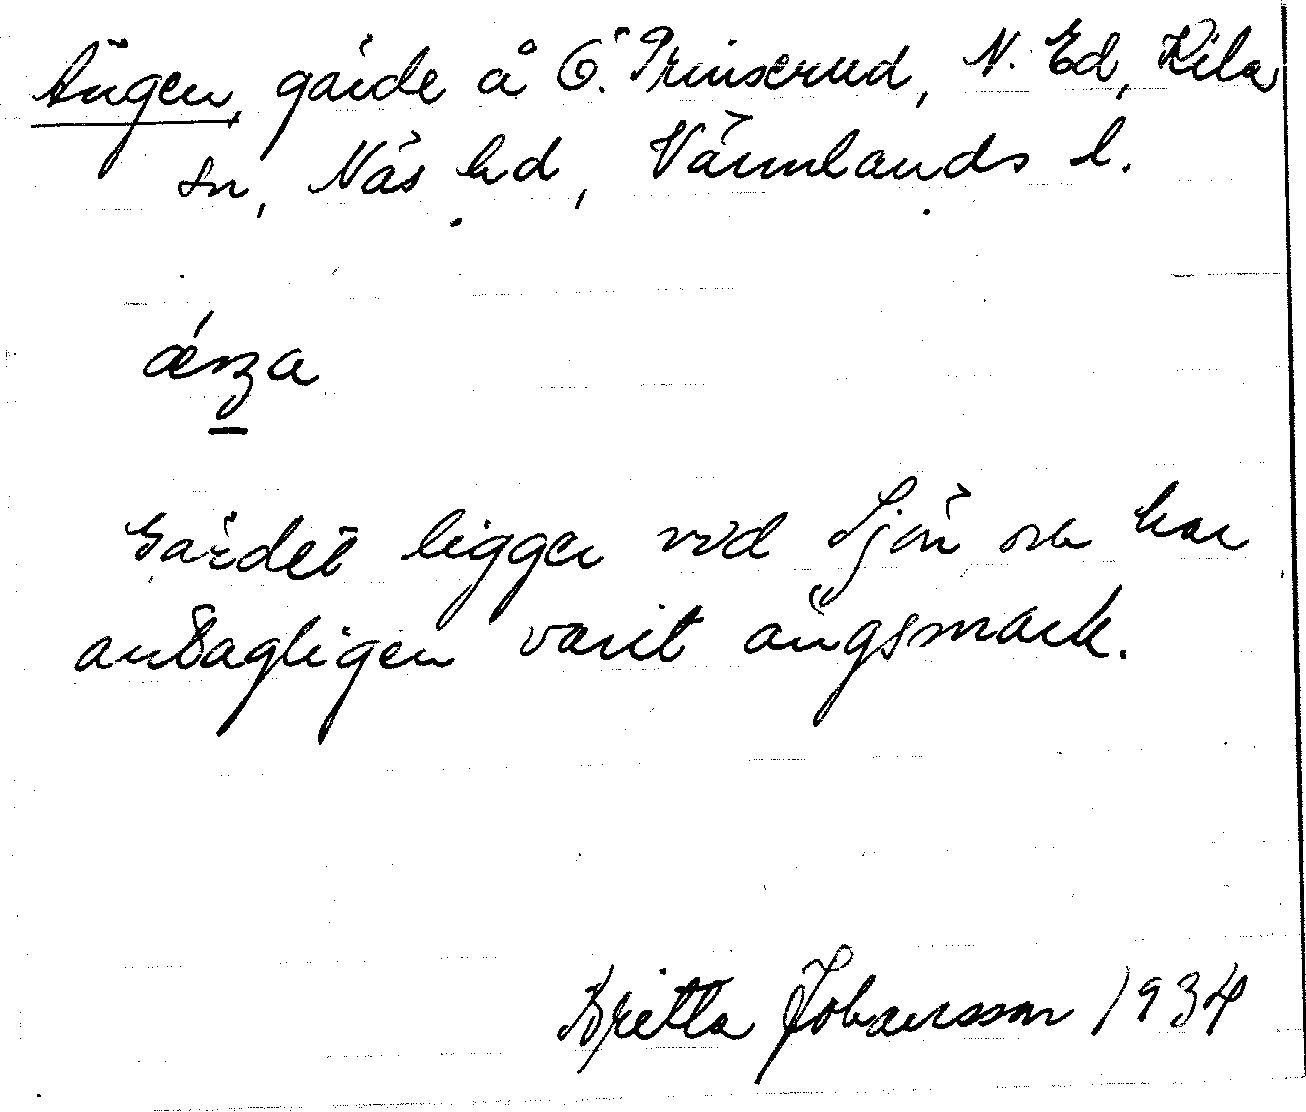 Ängen, gärde å Ö. Prinserud, N. Ed, Kila
sn, Näs hd, Värmlands l.
Gärdet ligger vid Sjön och har
antagligen varit ängsmark.
Britta Johansson 1934